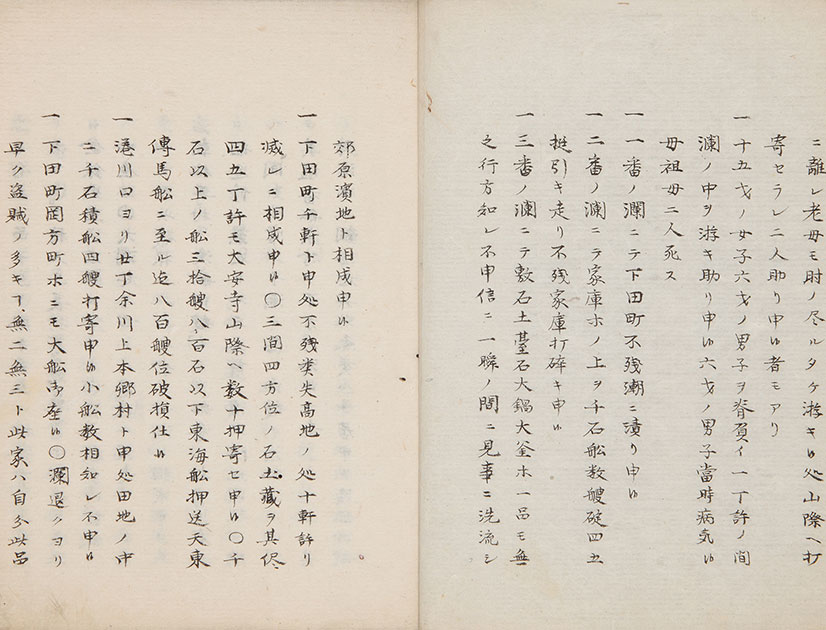 ニ離レ老母モ肘ノ尽ルタケ游キ処山際ヘ打
寄セラレ二人助リ申候者モアリ
一十五才ノ女子六才ノ男子ヲ脊負イ一丁許ノ間
瀾ノ中ヲ游キ助リ申候六才ノ男子當時病気候
母祖母二人死ス
一一番ノ瀾ニテ下田町不残潮ニ漬リ申候
一二番ノ瀾ニテ家庫ホノ上ヲ千石舩数艘碇四五
挺引キ走リ不残家庫打碎キ申候
一三番ノ瀾ニテ敷石土䑓石大鍋大釜ホ一品モ無
之行方知レ不申信ニ一瞬ノ間ニ見事ニ洗流シ
郊原濱地ト相成申候
一下田町千軒ト申処不残粪失高地ノ処十軒許リ
減レニ相成申候〇三間四方位ノ石土藏ヲ其侭
四五丁許モ大安寺山際ヘ数十押寄セ申候〇千
石以上ノ舩三拾艘八百石以下東海舩押送天東
傳馬舩ニ至ル迠八百艘位破損仕候
一港川口ヨリ廿丁余川上本郷村ト申処田地ノ中
ニ千石積舩四艘打寄申候小舩数相知レ不申候
一下田町岡方町ホニモ大舩御座候〇瀾退クヨリ
早ク盗賊ノ多キヿ無二無三ト此家ハ自分此品